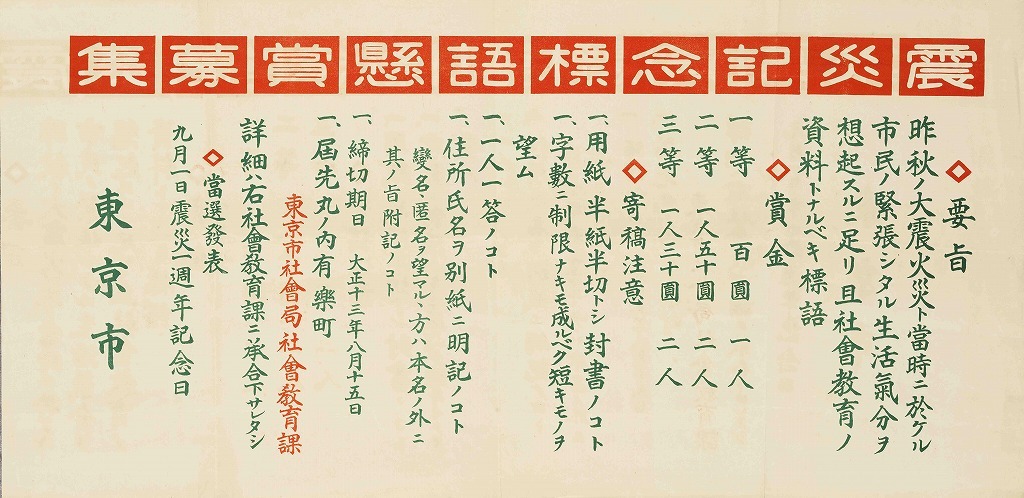 震災記念標語懸賞募集
要旨
昨秋ノ大震火災ト當時ニ於ケル
市民ノ緊張シタル生活氣分ヲ
想起スルニ足リ且社會教育ノ
資料トナルベキ標語
賞金
一等 百圓 一人
二等 一人五十圓 二人
三等 一人三十圓 二人
寄稿注意
一、用紙 半紙半切トシ封書ノコト
一、字數ニ制限ナキモ成ルベク短キモノヲ
望ム
一、一人一答ノコト
一、住所氏名ヲ別紙ニ明記ノコト
變名匿名ヲ望マルヽ方ハ本名ノ外ニ
其ノ旨附記ノコト
一、締切期日 大正十三年八月十五日
一、屆先丸ノ內有樂町
東京市社會局社會教育課
詳細ハ右社會教育課ニ承合下サレタシ
當選發表
九月一日震災一週年記念日
東京市